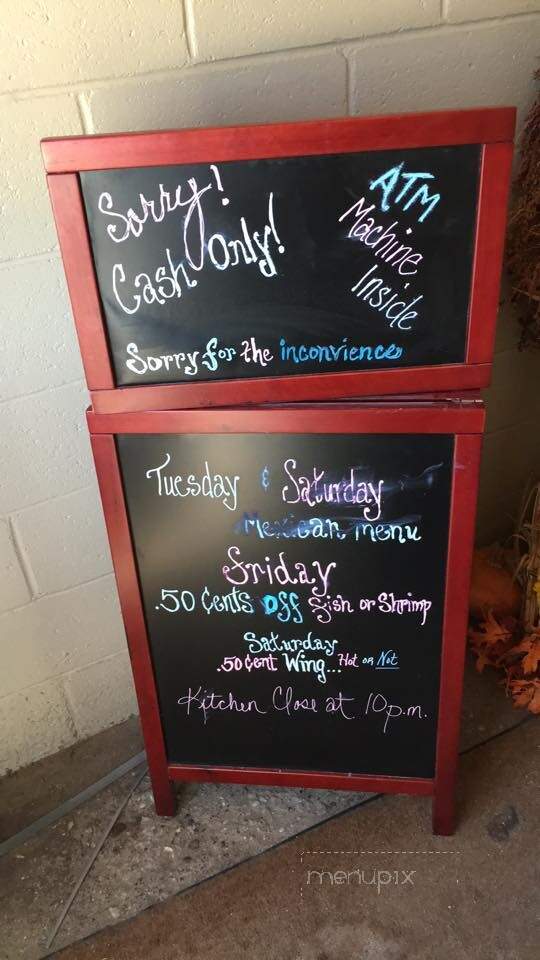 Sorry!
Cash Only!
ATM
Machine
Inside
Sorry for the inconvience
Tuesday & Saturday
Mexican menu
Friday
.50 Cents Off Fish or Shrimp
Saturday
.50 Cent Wing... Hot or Not
Kitchen Close at 10p.m.
menupix